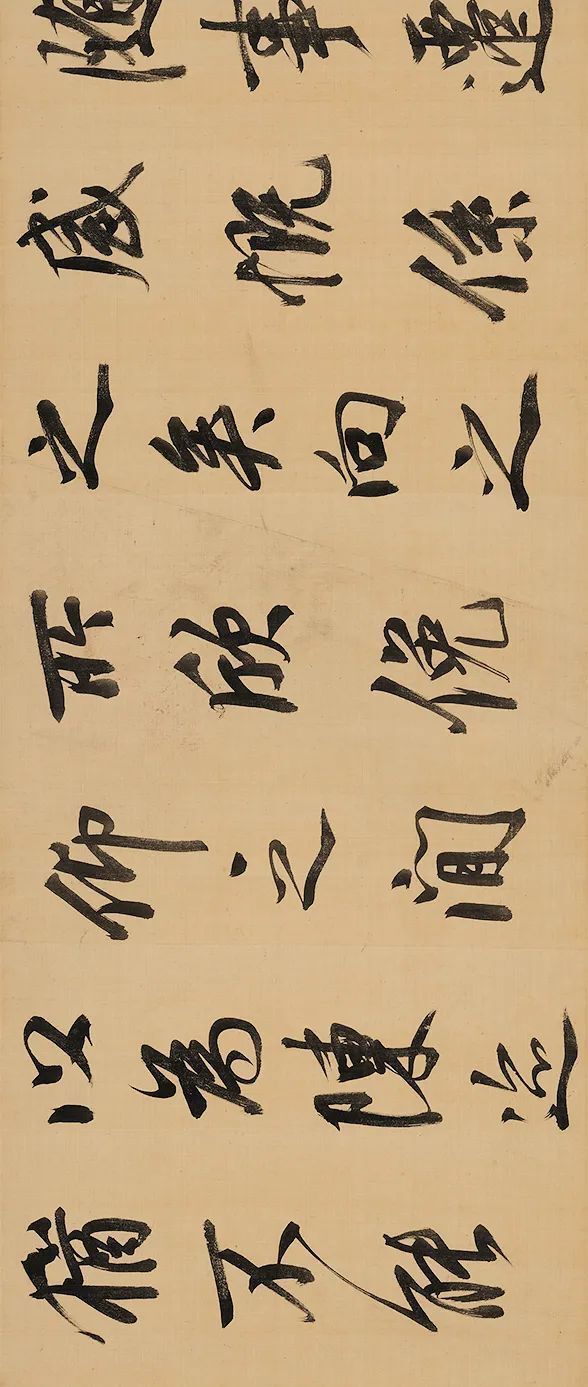 隨事遷
感慨係
之矣向之
所欣俛
仰之間
以為陳迹
猶不能